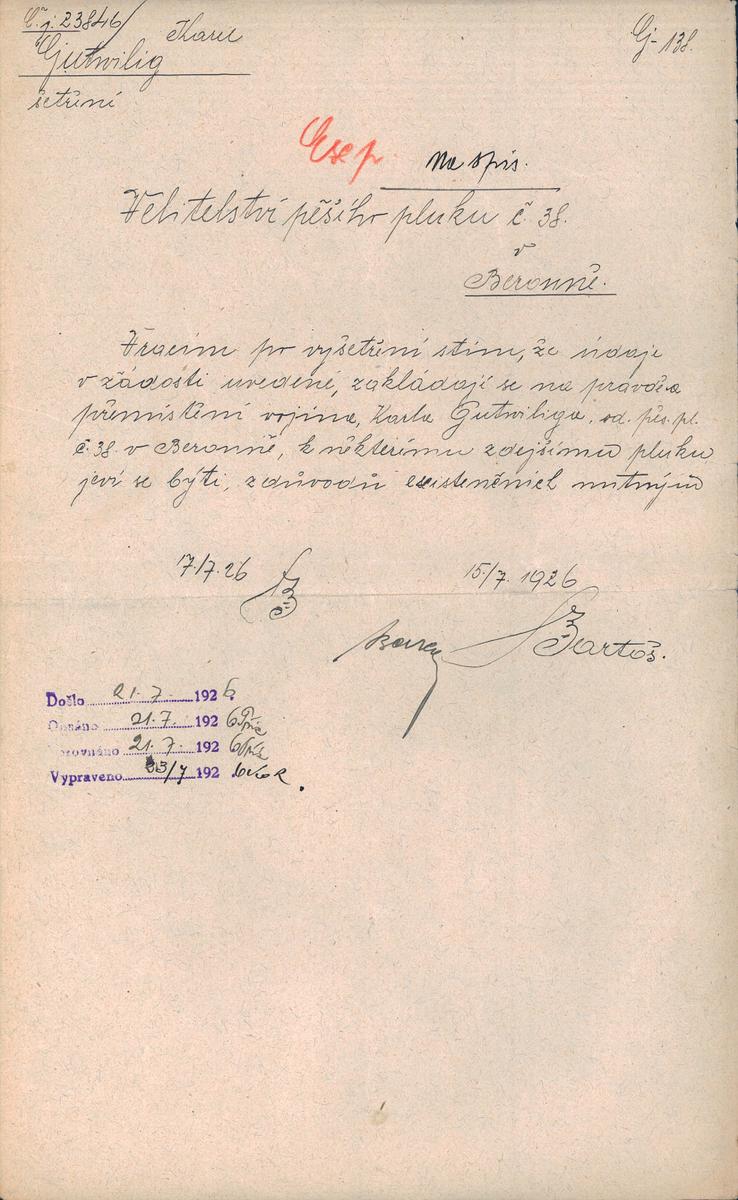 Č.j. 23846/
Karel
Gutwilig
šetření
G-138.
Exp. na spis.
Velitelství pěšího pluku č. 38.
v
Berouně.
Vracím po vyšetření stím, že údaje
v žádosti uvedené, zakládají se na pravdě a
přemístění vojína, Karla Gutwiliga, od. pěš. pl.
č. 38. v Berouně, k některému zdejšímu pluku
jeví se býti, z důvodů existenčních nutným
17./7. 26
15./7. 1926
Bartoš.
Došlo 21. 7. 1926.
21. 7. 1926
21. 7. 1926
Vypraveno 23/7 1926